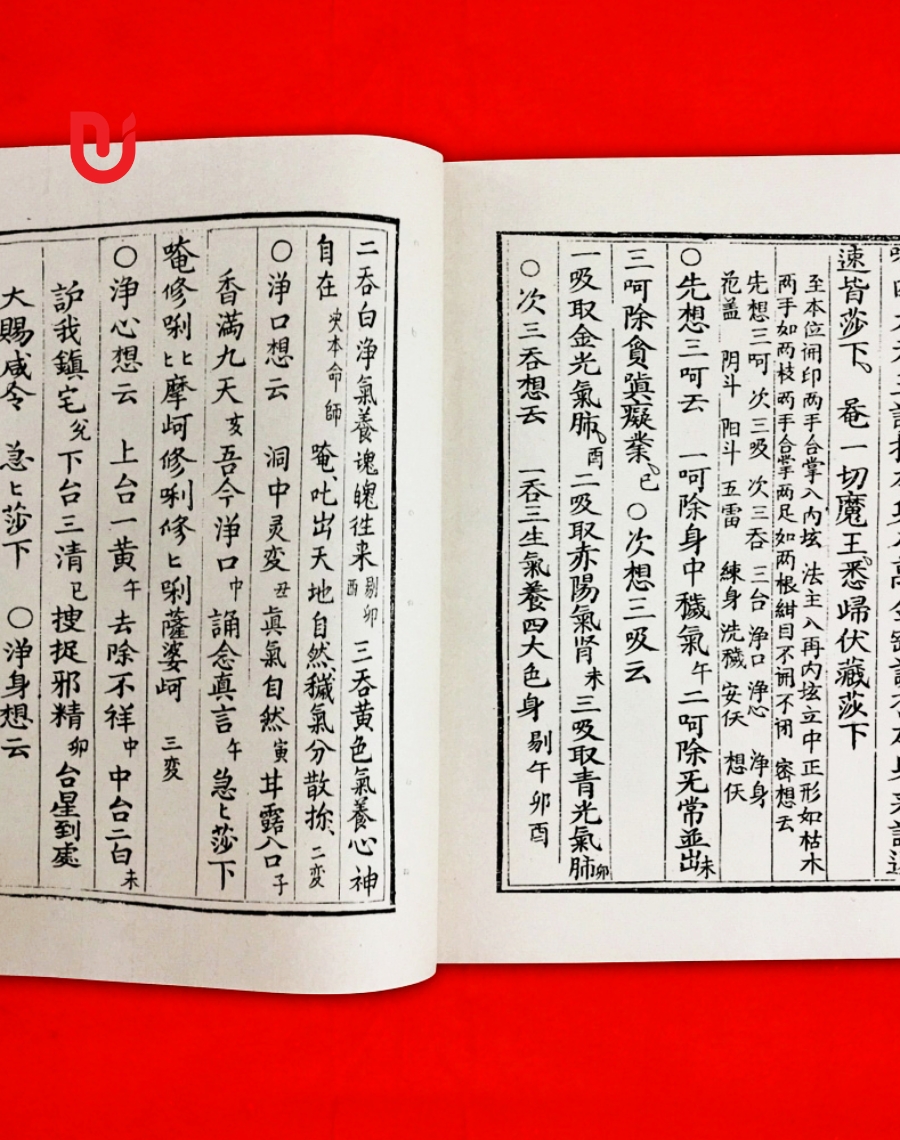 速皆莎下 菴一切魔王悉歸伏藏莎下
至本位開印兩手合掌入内垓 法主入再内垓立中正形如枯木
两手如两枝两手合掌两足如两根紺目不開不闭 密想云
先想三呵 次三吸 次三吞 三台 淨口 淨心 淨身
范盖 阴斗 阳斗 五雷 練身 洗穢 安仸 想仸
○先想三呵云 一呵除身中穢氣午二呵除旡常並出未
三呵除貪嗔癡業巳○次想三吸云
一吸取金光氣肺酉二吸取赤陽氣肾未三吸取青光氣肺卯
○次三吞想云 一吞三生氣養四大色身 剔午卯酉
二吞白淨氣養魂魄徃来剔卯酉 三吞黄色氣養心神
自在 央本命師 唵吡出天地自然穢氣分散捴二变
○淨口想云 洞中灵变丑眞氣自然寅甘露入口子
香滿九天亥吾今淨口中誦念真言午急匕莎下
唵修唎匕匕摩岢修唎修匕唎薩婆岢 三変
○淨心想云 上台一黄午去除不祥中中台二白未
訷我鎮宅允下台三清巳搜捉邪精卯台星到處
大賜咸令 急匕莎下 ○淨身想云